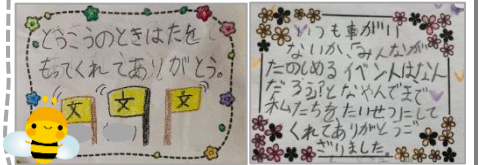 とうこうのときはたを
もってくれてありがとう。
文 文 文
いつも車がい
ないか、「みんなが
たのしめるイベントはなん
だろう」となやんでまで
私たちをたいせつにして
くれてありがとうご
ざりました。